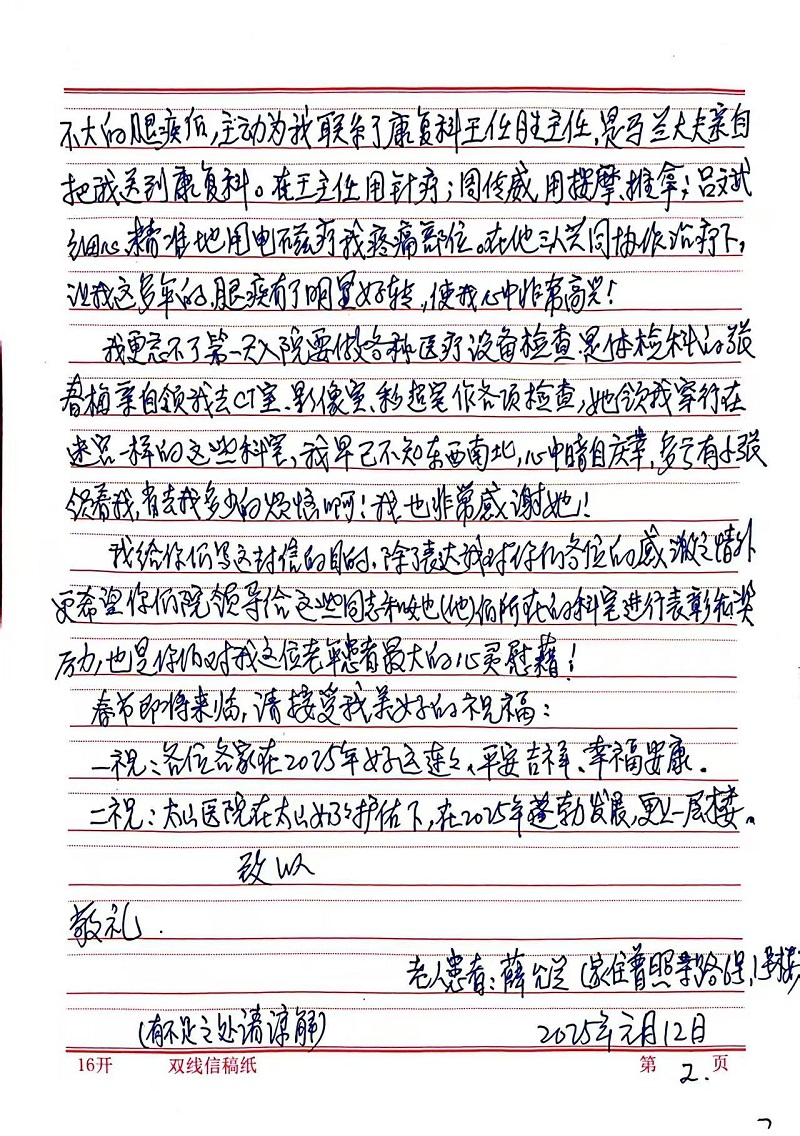 不大的腿疾后，主动为我联系了康复科王任胜主任，是马兰大夫亲自
把我送到康复科。在王主任用针疗；周传威用按摩、推拿；吕文武
细心、精准地用电磁疗我疼痛部位。在他三人共同协作治疗下，
让我这多年的腿疾有了明显好转，使我心中非常高兴！
我更忘不了第一天入院要做各种医疗设备检查，是体检科的张
春梅亲自领我去CT室、影像室、秒超室作各项检查，她领我穿行在
迷宫一样的这些科室，我早已不知东西南北，心中暗自庆幸，多亏有小张
领着我，省去我多少的烦恼啊！我也非常感谢她！
我给你们写这封信的目的，除了表达我对你们各位的感激之情外
更希望你们院领导给这些同志和她(他)们所在的科室进行表彰和奖
厉力，也是你们对我这位老年患者最大的心灵慰藉！
春节即将来临，请接受我美好的祝福：
一祝：各位各家在2025年好运连连、平安吉祥、幸福安康。
二祝：太山医院在太山奶奶护佑下，在2025年蓬勃发展，更上一层楼。
致以
敬礼.
老人患者：薛 (家住普照寺路6号，1号楼)
(有不足之处请谅解)
2025年元月12日
16开 双线信稿纸 第 2. 页